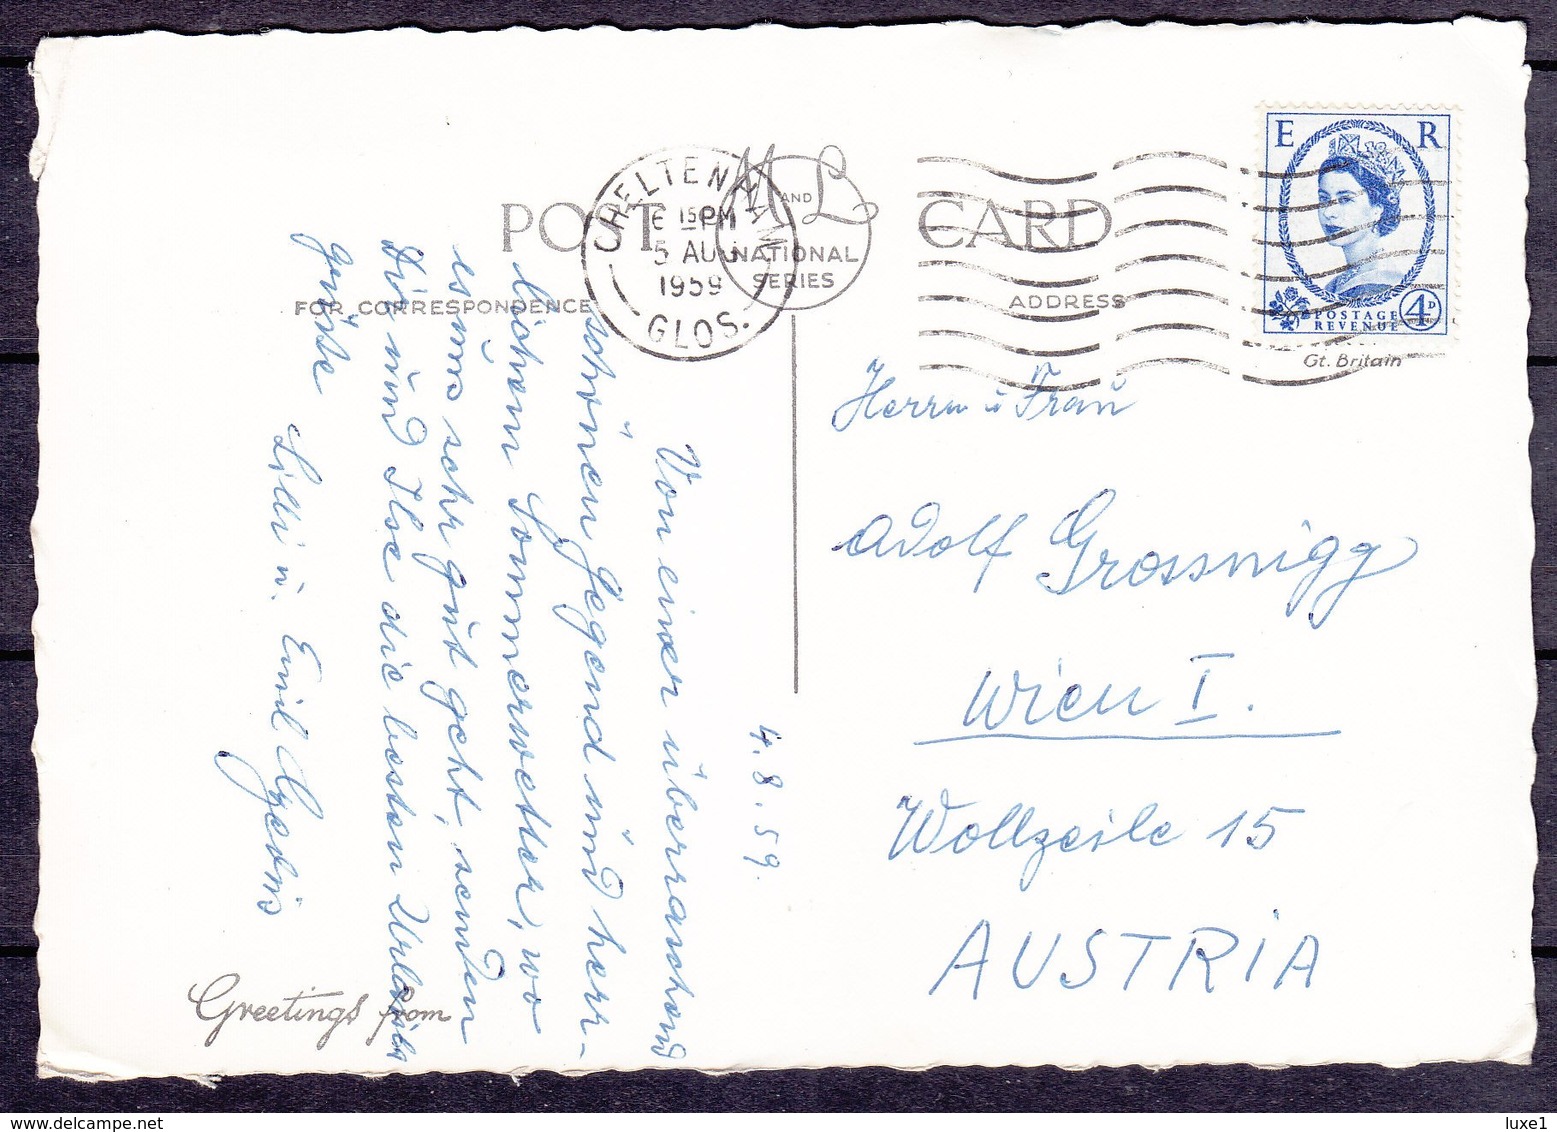 POST CARD
M AND L
NATIONAL
SERIES
FOR CORRESPONDENCE
ADDRESS
CHELTENHAM
6 15 PM
5 AUG
1959
GLOS.
E R
POSTAGE
REVENUE
4D
Gt. Britain
4.8.59.
Von einer überraschend
schönen Gegend und herr-
lichem Sommerwetter, wo
es uns sehr gut geht, senden
Dir und Ilse die besten Urlaubs
grüße
Lilli u. Emil
Herrn u Frau
Adolf Grossnigg
Wien I.
Wollzeile 15
AUSTRIA
Greetings from
delcampe.net
luxe1